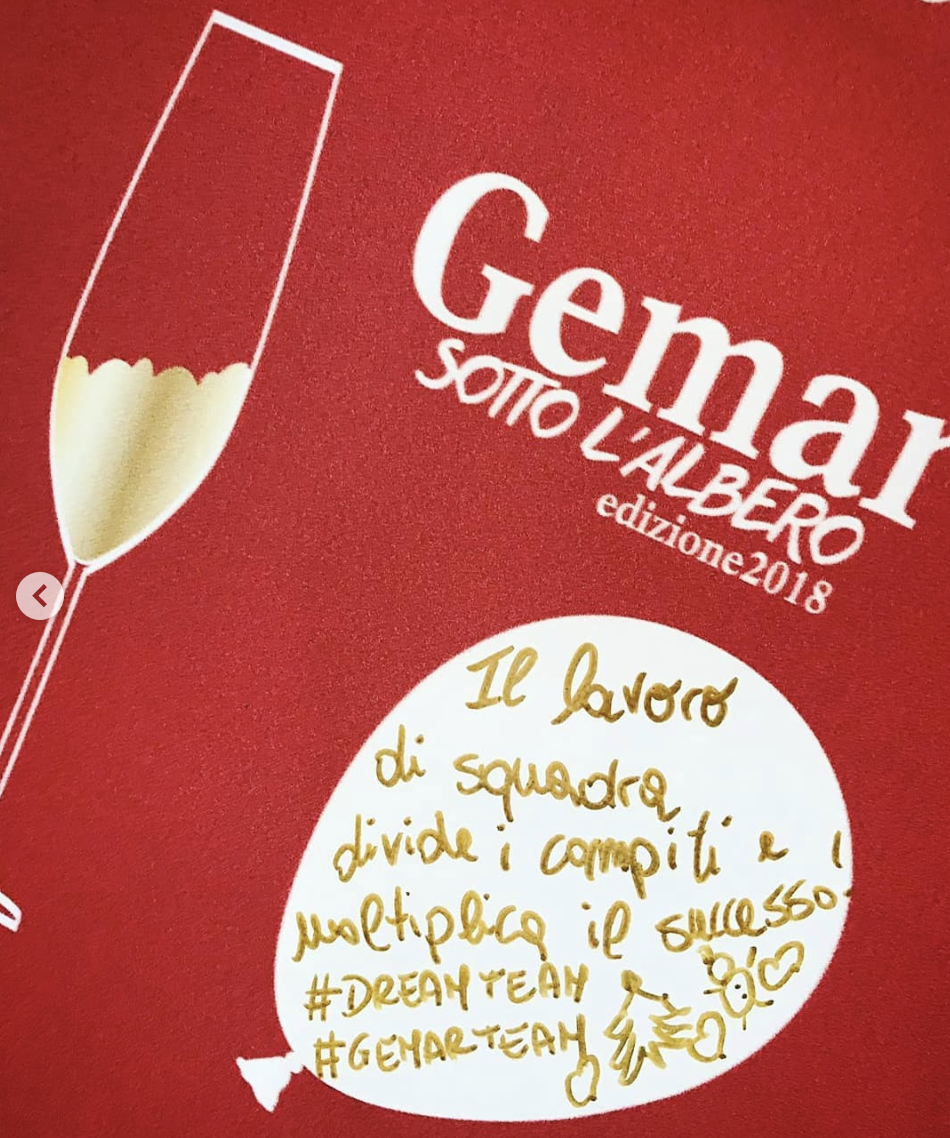 Gemar
SOTTO L'ALBERO
edizione2018
Il lavoro
di squadra
divide i compiti e
moltiplica il successo!
#DREAMTEAM
#GEMARTEAM